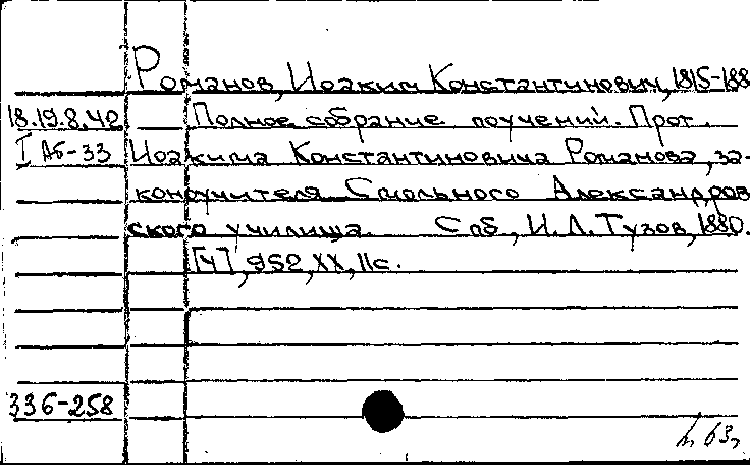 Романов, Иоаким Константинович, 1815-188
18.19.8.42 Полное собрание поучений. Прот.
I АБ-33 Иоакима Константиновича Романова, за-
коноучителя Смольного Александров
ского училища. Спб, И.Л.Тузов, 1880.
[4], 952, XX, IIс.
336-258
63,